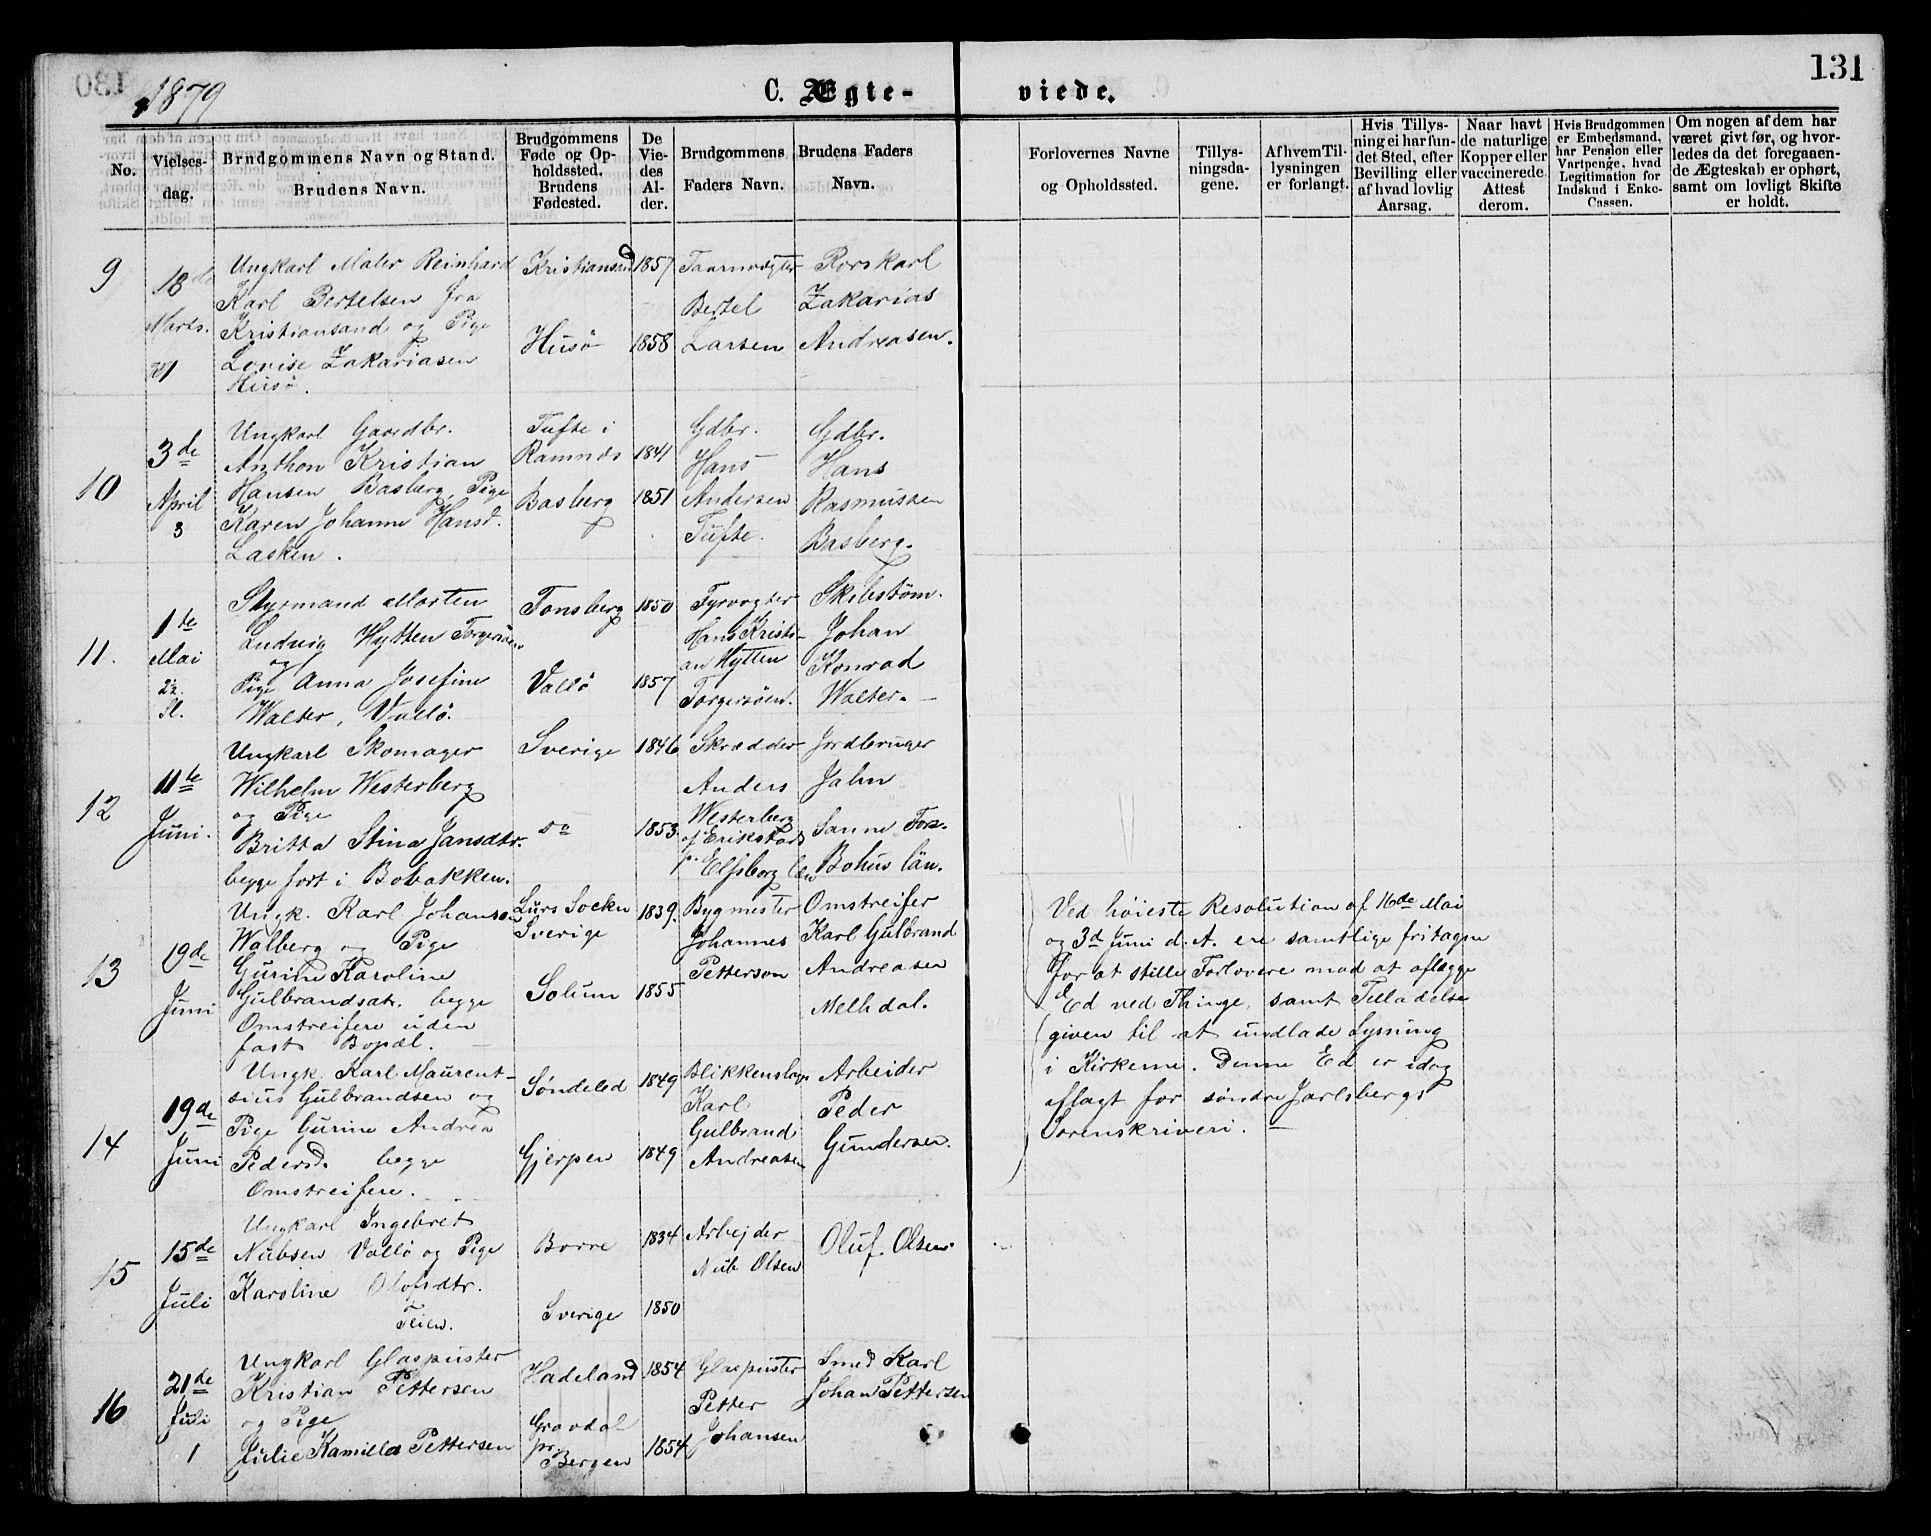 1879
C. Ægte-
viede.
131
No.
Vielses-
dag.
Brudgommens Navn og Stand.
Brudens Navn.
Brudgommens
Føde og Op-
holdssted.
Brudens
Fødested.
De
Vie-
des
Al-
der.
Brudgommens
Faders Navn.
Brudens Faders
Navn.
Forlovernes Navne
og Opholdssted.
Tillys-
ningsda-
gene.
Af hvem Til-
lysningen
er forlangt.
Hvis Tillys-
ning ei har fun-
det Sted, efter
Bevilling eller
af hvad lovlig
Aarsag.
Naar havt
de naturlige
Kopper eller
vaccinerede.
Attest
derom.
Hvis Brudgommen
er Embedsmand,
har Pension eller
Vartpenge, hvad
Legitimation for
Indskud i Enke-
Cassen.
Om nogen af dem har
været givt før, og hvor-
ledes da det foregaaen-
de Ægteskab er ophørt,
samt om lovligt Skifte
er holdt.
9
18de
Marts.
Ungkarl Maler Reinhard
Karl Bertelsen fra
Kristiansand og Pige
Lovise Zakariasen
Husö.
Kristiansand
Husö
1857
1858
Taarnvægter
Bertel
Larsen
Rorskarl
Zakarias
Andreasen.
10
3de
April
3
Ungkarl Gaardbr.
Anthon Kristian
Hansen Basberg, Pige
Karen Johanne Hansd.
Lasken.
Tufte i
Ramnæs
Basberg
1841
1851
Gdbr.
Hans
Andersen
Tufte.
Gdbr.
Hans
Rasmussen
Basberg.
11.
1te
Mai
Styrmand Morten
Ludvig Hytten Torgersöen
og
Pige Anna Josefine
Walter, Vallö.
Tonsberg
Vallö
1850
1857
Fyrvogter
Hans Kristi-
an Hytten
Torgersöen.
Skibstöm.
Johan
Konrad
Walter.
12
11te
Juni.
Ungkarl Skomager
Wilhelm Westerberg
og Pige
Britta Stina Jansdtr.
begge fort i Bobakken.
Sverige
do
1846
1853.
Skrædder
Anders
Westerberg
af Erikstad
p. Elfsborg län
Jordbruger
Jahn
Sanne Fors.
Bohus län.
13
19de
Juni
Ungk. Karl Johanson
Walberg og Pige
Gurine Karoline
Gulbrandsdtr. begge
Omstreifere uden
fast Bopæl.
Lurs Sockn
Sverige
Solum
1839.
1855
Bygmester
Johannes
Petterson
Omstreifer
Karl Gulbrand
Andreasen
Melhdal.
Ved höieste Resolution af 16de Mai
og 3d Juni d. A. ere samtlige fritagne
for at stille Forlovere mod at aflægge
Ed ved Thinge, samt Tilladelse
given til at undlade Lysning
i Kirkerne. Denne Ed er idag
aflagt for söndre Jarlsbergs
Sorenskriveri.
14
19de
Juni
Ungk. Karl Maurent-
sius Gulbrandsen og
Pige Gurine Andrea
Pedersd. begge
Omstreifere.
Söndeled
Gjerpen
1849
1849
Blikkenslager
Karl
Gulbrand
Andreasen
Arbeider
Peder
Gundersen.
15
15de
Juli
Ungkarl Ingebret
Nubsen Vallö og Pige
Karoline Olofsdtr.
Borre
Sverige
1834
1850
Arbejder
Nub Olsen
Oluf. Olsen.
16
21de
Juli
1
Ungkarl Glaspuster
Kristian Pettersen
og Pige
Julie Kamilla Pettersen
Hadeland
Gravdal
pr.
Bergen
1854
1854
Glaspuster
Petter
Johansen
Smed Karl
Johan Pettersen